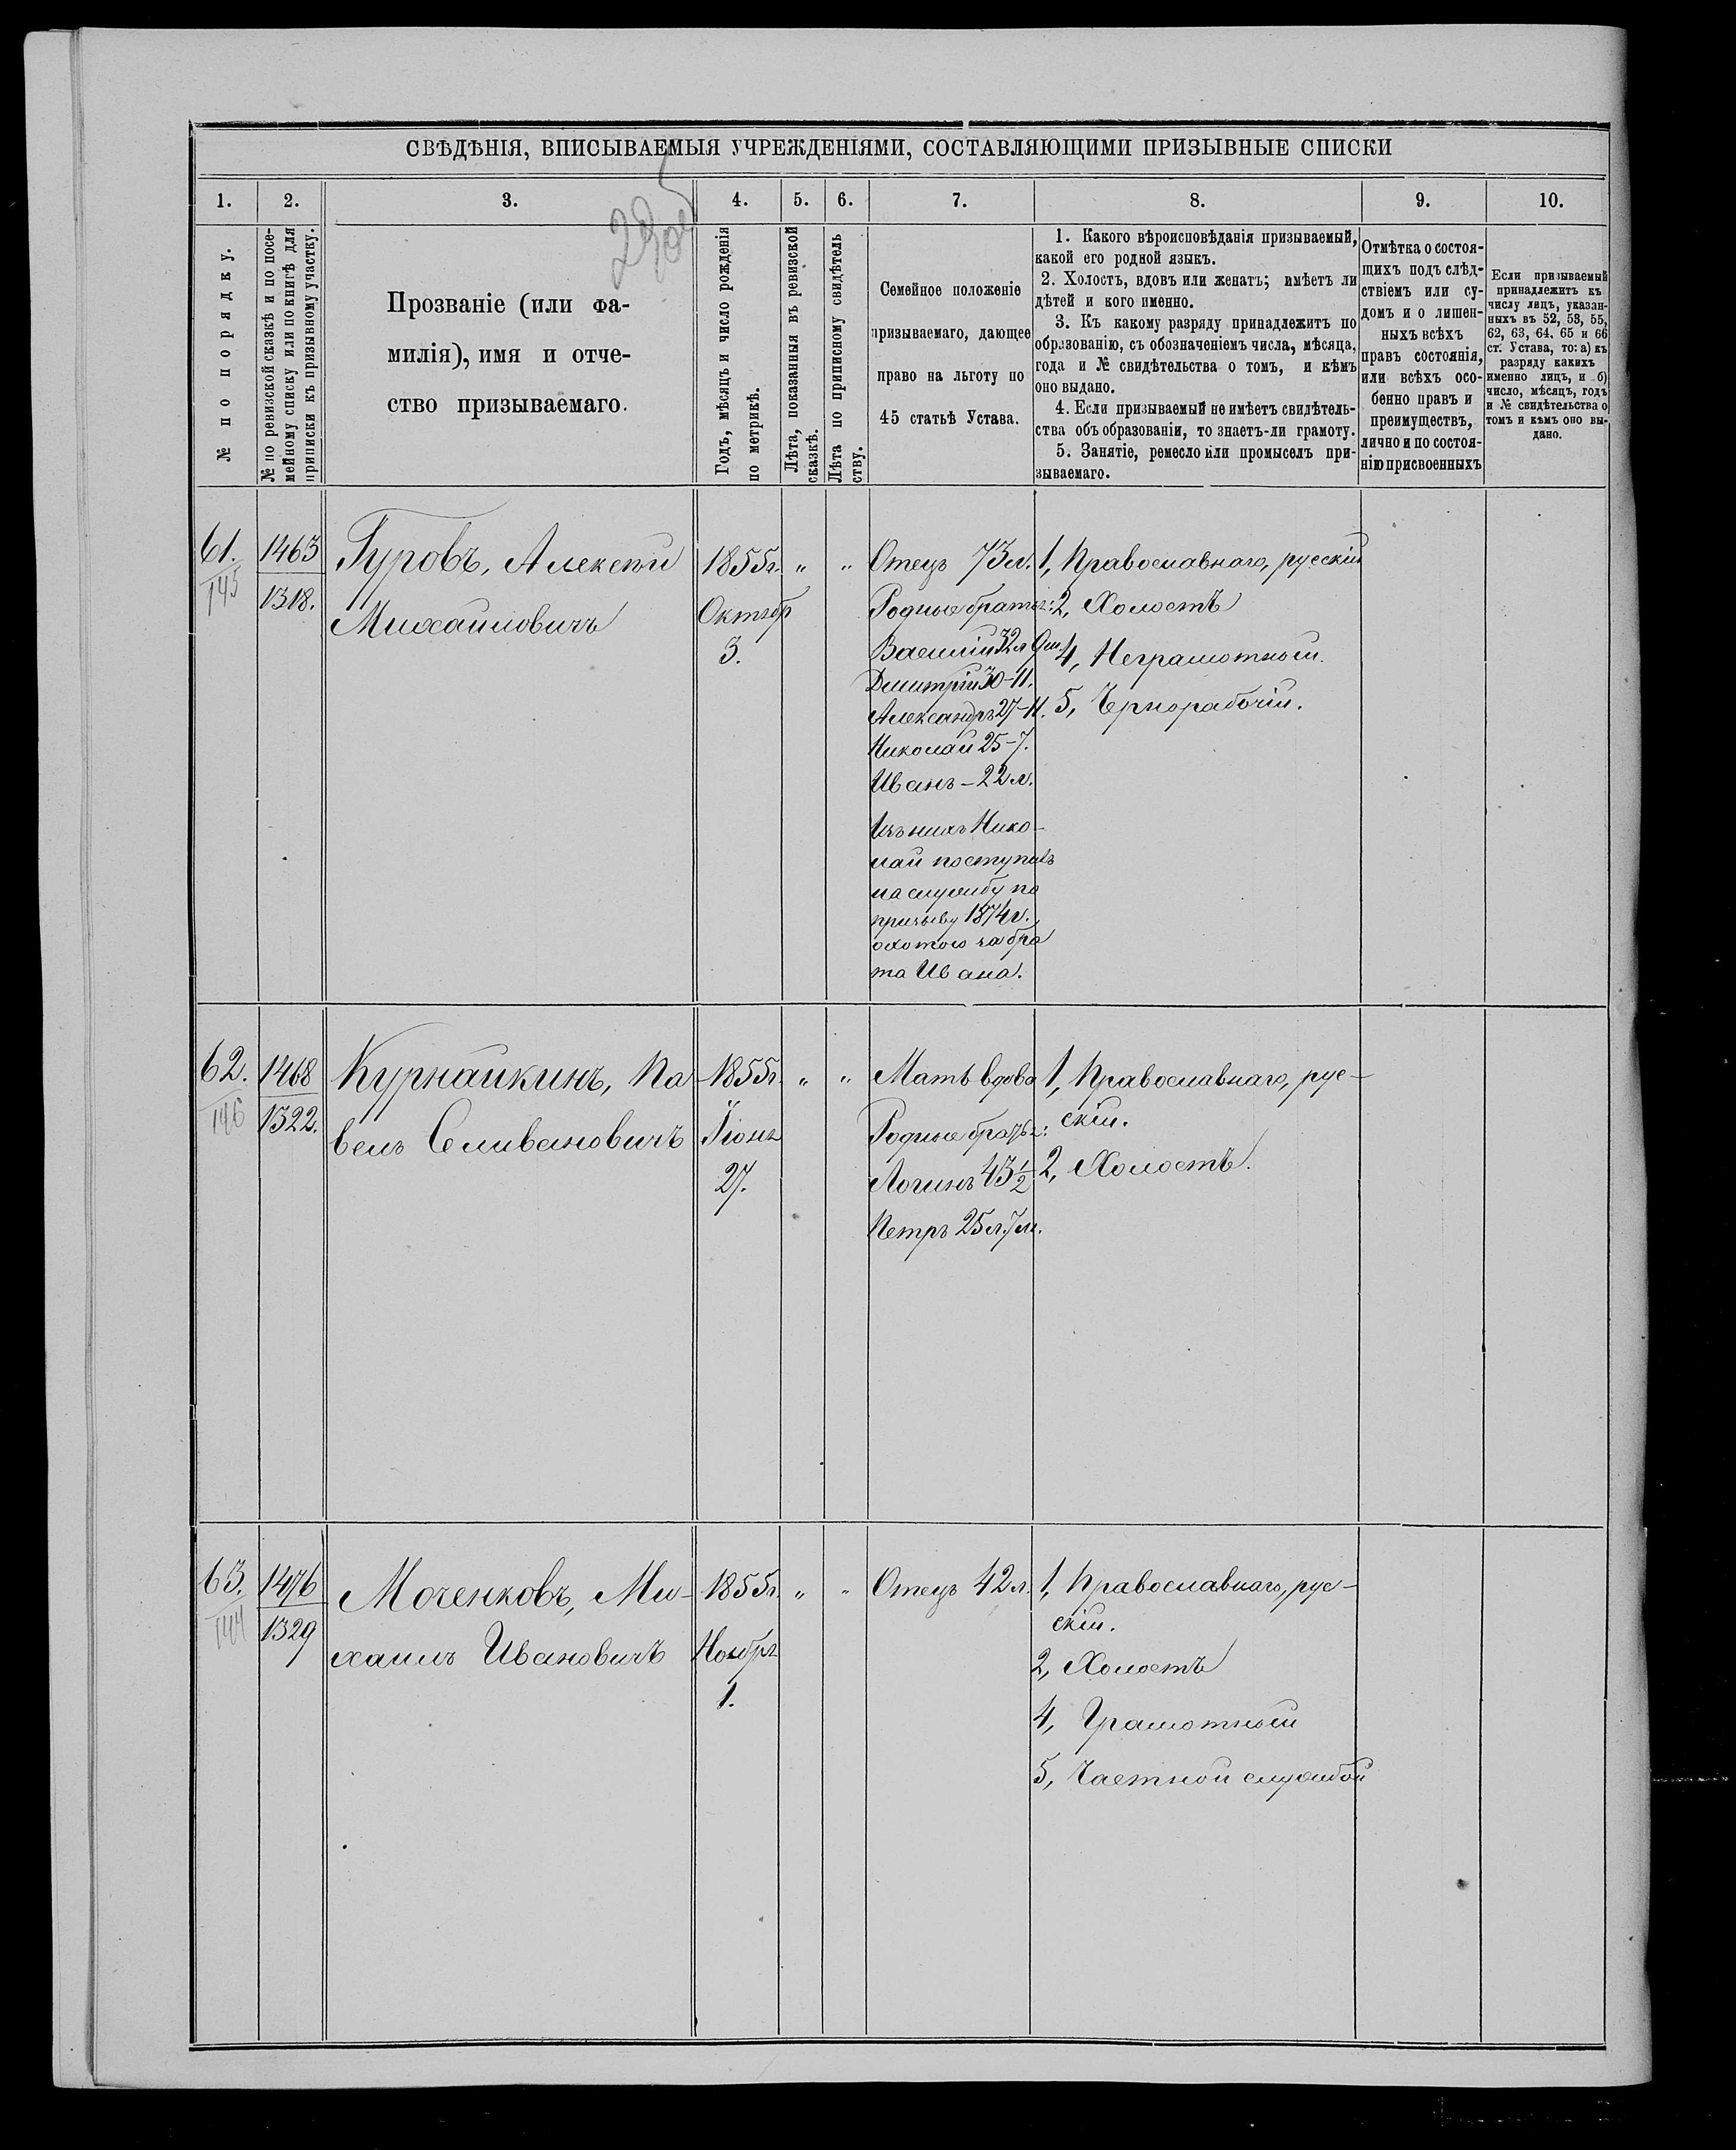 СВѢДѢНІЯ, ВПИСЫВАЕМЫЯ УЧРЕЖДЕНІЯМИ, СОСТАВЛЯЮЩИМИ ПРИЗЫВНЫЕ СПИСКИ
1. 2. 3. 4. 5. 6. 7. 8. 9. 10.
№ по порядку.
№ по ревизской сказкѣ и по посе-
мейному списку или по книгѣ для
приписки къ призывному участку.
Прозваніе (или фа-
милія), имя и отче-
ство призываемаго.
Годъ, мѣсяцъ и число рожденія
по метрикѣ.
Лѣта, показанныя въ ревизской
сказкѣ.
Лѣта по приписному свидѣтель
ству.
Семейное положеніе
призываемаго, дающее
право на льготу по
45 статьѣ Устава.
1. Какого вѣроисповѣданія призываемый,
какой его родной языкъ.
2. Холостъ, вдовъ или женатъ; имѣетъ ли
дѣтей и кого именно.
3. Къ какому разряду принадлежитъ по
образованію, съ обозначеніемъ числа, мѣсяца,
года и № свидѣтельства о томъ, и кѣмъ
оно выдано.
4. Если призываемый не имѣетъ свидѣтель-
ства объ образованіи, то знаетъ-ли грамоту.
5. Занятіе, ремесло или промыселъ при-
зываемаго.
Отмѣтка о состоя-
щихъ подъ слѣд-
ствіемъ или су-
домъ и о лишен-
ныхъ всѣхъ
правъ состоянія,
или всѣхъ осо-
бенно правъ и
преимуществъ,
лично и по состоя-
нію присвоенныхъ
Если призываемый
принадлежитъ къ
числу лицъ, указан-
ныхъ въ 52, 53, 55,
62, 63, 64, 65 и 66
ст. Устава, то: а) къ
разряду какихъ
именно лицъ, и б)
число, мѣсяцъ, годъ
и № свидѣтельства о
томъ и кѣмъ оно вы-
дано.
61.
145
1463
1318.
Гуровъ, Алексѣй
Михайловичъ
1855г.
Октябр
3.
„ „
Отецъ 73 л.
Родные братья:
Василій 32л 9м.
Дмитрій 30-11.
Александръ 27-11.
Николай 25-7.
Иванъ - 22 л.
Изъ нихъ Нико-
лай поступилъ
на службу по
призыву 1874г.
охотою за бра
та Ивана.
1, Православнаго, русскій
2, Холостъ
4, Неграмотный.
5, Чернорабочій.
62.
146
1468
1322.
Курнайкинъ, Па
велъ Селивановичъ
1855г.
Іюнь
27.
„ „
Мать вдова
Родные братья:
Логинъ 43 1/2
Петръ 25 л. 7 м.
1, Православнаго, рус-
скій.
2, Холостъ.
63.
1476
1329
Моченковъ, Ми-
хаилъ Ивановичъ
1855г.
Ноябрь
1.
„ „
Отецъ 42 л.
1, Православнаго, рус-
скій.
2, Холостъ
4, Грамотный
5, Частной службой